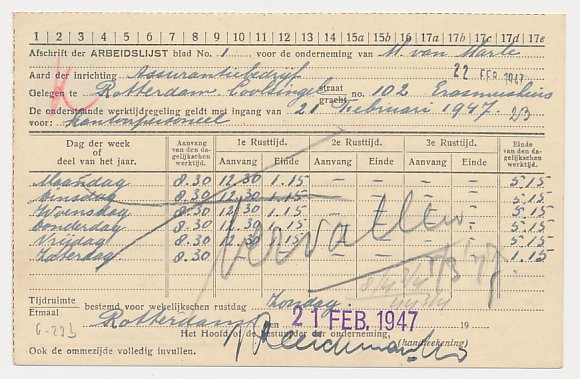 1 2 3 4 5 6 7 8 9 10 11 12 13 14 15a 15b 16 17a 17b 17c 17d 17e
Afschrift der ARBEIDSLIJST blad No. 1 voor de onderneming van M. van Marle
Aard der inrichting Assurantiebedrijf 22 FEB. 1947
Gelegen te Rotterdam Coolsingel straat gracht no. 102 Erasmushuis
De onderstaande werktijdregeling geldt met ingang van 21 Februari 1947.
voor: Kantoorpersoneel
Dag der week of deel van het jaar. Aanvang van den dagelijkschen werktijd. 1e Rusttijd. 2e Rusttijd. 3e Rusttijd. Einde van den dagelijkschen werktijd.
Aanvang Einde Aanvang Einde Aanvang Einde
Maandag 8.30 12.30 1.15 — — — — 5.15
Dinsdag 8.30 12.30 1.15 — — — — 5.15
Woensdag 8.30 12.30 1.15 — — — — 5.15
Donderdag 8.30 12.30 1.15 — — — — 5.15
Vrijdag 8.30 12.30 1.15 — — — — 5.15
Zaterdag 8.30 — — — — 1.15
Vervallen
Tijdruimte Etmaal bestemd voor wekelijkschen rustdag Zondag.
Rotterdam den 21 FEB. 1947 19
G-293
Het Hoofd of de Bestuurder der onderneming,
(handteekening)
Ook de ommezijde volledig invullen.